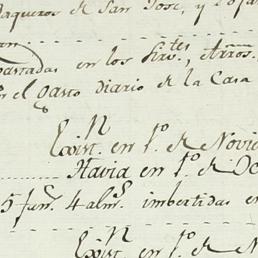 Vaqueros de San Jose, y
gastadas en los Sres.tes, 
el gasto Diario de la Casa
Exist.n en 1.o de Novie
Havia en 1.o de Oc
5 fan.s 4 alm.s imbertidas en
Exist.n en 1.o de N